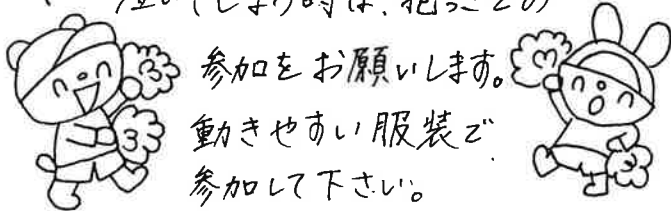 泣いてしまう時は、抱っこでの
参加をお願いします。
動きやすい服装で
参加して下さい。